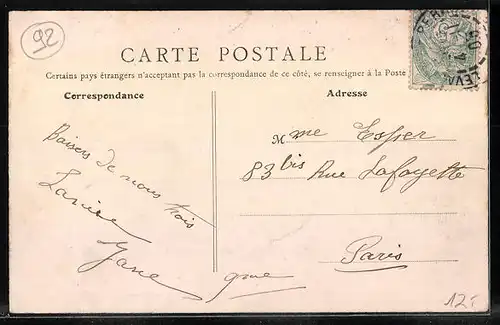 92
CARTE POSTALE
Certains pays étrangers n'acceptant pas la correspondance de ce côté, se renseigner à la Poste
Correspondance
Adresse
Baisers de nous trois
Mme Esper
83 bis Rue Lafayette
Paris
12-